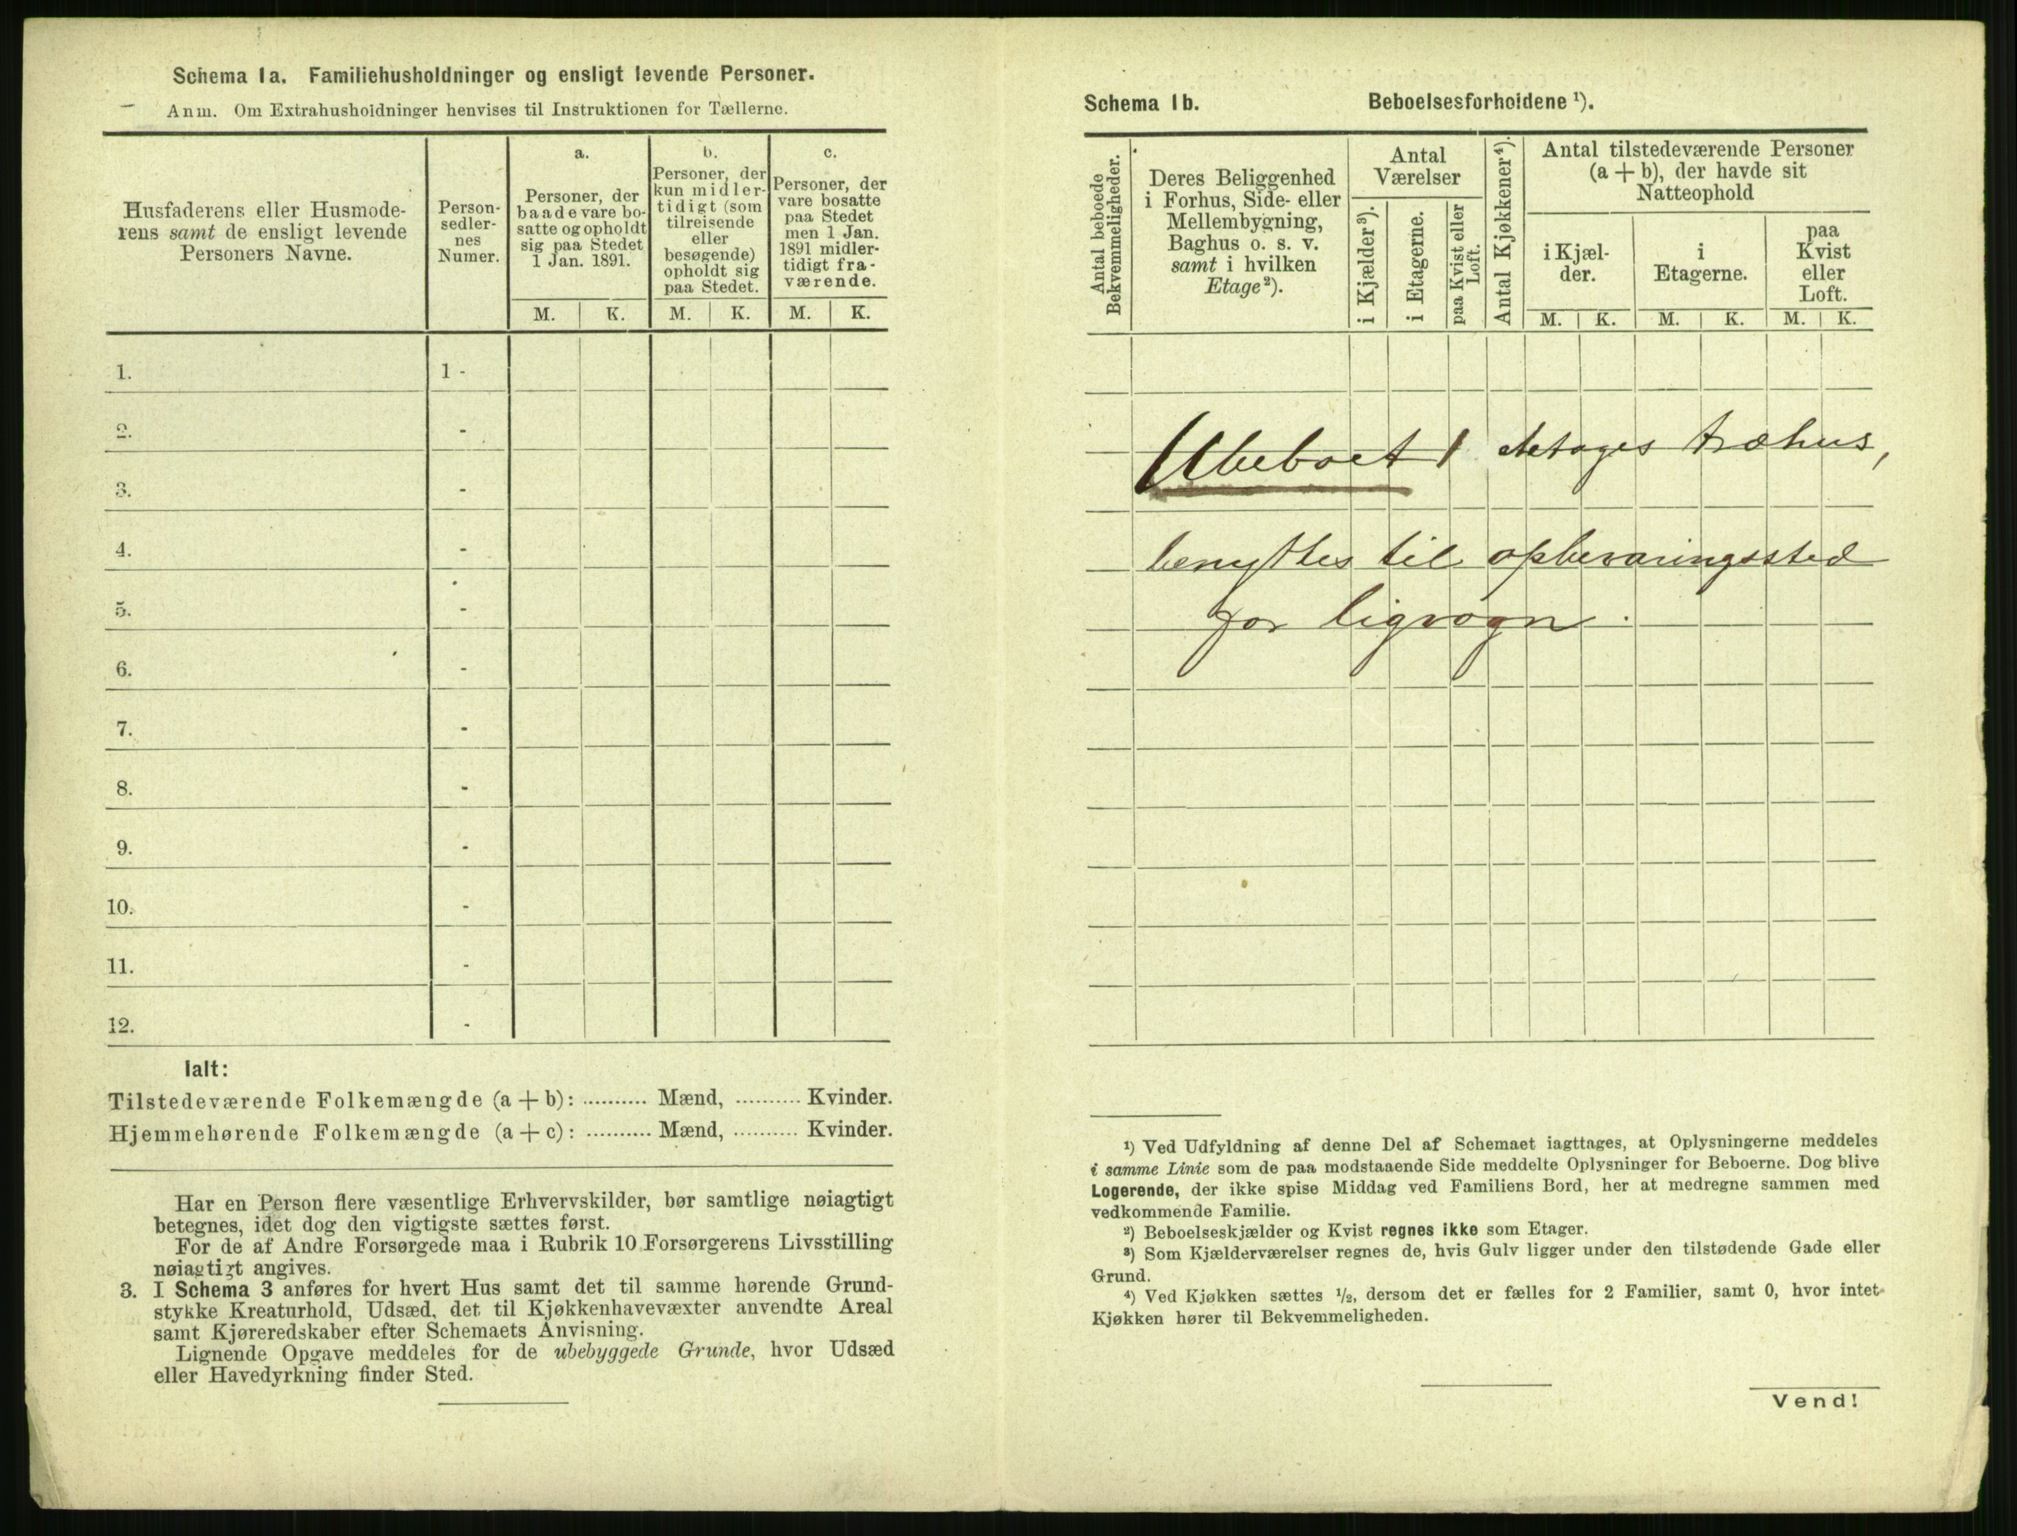 Schema 1a. Familiehusholdninger og ensligt levende Personer.
Anm. Om Extrahusholdninger henvises til Instruktionen for Tællerne.
Husfaderens eller Husmode-
rens samt de ensligt levende
Personers Navne.
Person-
sedler-
nes
Numer.
a.
Personer, der
baade vare bo-
satte og opholdt
sig paa Stedet
1 Jan. 1891.
b.
Personer, der
kun midler-
tidigt (som
tilreisende
eller
besøgende)
opholdt sig
paa Stedet.
c.
Personer, der
vare bosatte
paa Stedet
men 1 Jan.
1891 midler-
tidigt fra-
værende.
M. K. M. K. M. K.
1. 1 -
2. -
3. -
4. -
5. -
6. -
7. -
8. -
9. -
10. -
11. -
12. -
Ialt:
Tilstedeværende Folkemængde (a + b): .......... Mænd, .......... Kvinder.
Hjemmehørende Folkemængde (a + c): .......... Mænd, .......... Kvinder.
Har en Person flere væsentlige Erhvervskilder, bør samtlige nøiagtigt
betegnes, idet dog den vigtigste sættes først.
For de af Andre Forsørgede maa i Rubrik 10 Forsørgerens Livsstilling
nøiagtigt angives.
3. I Schema 3 anføres for hvert Hus samt det til samme hørende Grund-
stykke Kreaturhold, Udsæd, det til Kjøkkenhavevæxter anvendte Areal
samt Kjøreredskaber efter Schemaets Anvisning.
Lignende Opgave meddeles for de ubebyggede Grunde, hvor Udsæd
eller Havedyrkning finder Sted.
Schema 1b. Beboelsesforholdene ¹).
Antal beboede
Bekvemmeligheder.
Deres Beliggenhed
i Forhus, Side- eller
Mellembygning,
Baghus o. s. v.
samt i hvilken
Etage²).
Antal
Værelser
i Kjælder³).
i Etagerne.
paa Kvist eller
Loft.
Antal Kjøkkener⁴).
Antal tilstedeværende Personer
(a + b), der havde sit
Natteophold
i Kjæl-
der.
i
Etagerne.
paa
Kvist
eller
Loft.
M. K. M. K. M. K.
Ubeboet 1 etages træhus,
benyttes til opbevaringssted
for ligvogn.
¹) Ved Udfyldning af denne Del af Schemaet iagttages, at Oplysningerne meddeles
i samme Linie som de paa modstaaende Side meddelte Oplysninger for Beboerne. Dog blive
Logerende, der ikke spise Middag ved Familiens Bord, her at medregne sammen med
vedkommende Familie.
²) Beboelseskjælder og Kvist regnes ikke som Etager.
³) Som Kjælderværelser regnes de, hvis Gulv ligger under den tilstødende Gade eller
Grund.
⁴) Ved Kjøkken sættes ½, dersom det er fælles for 2 Familier, samt 0, hvor intet
Kjøkken hører til Bekvemmeligheden.
Vend!